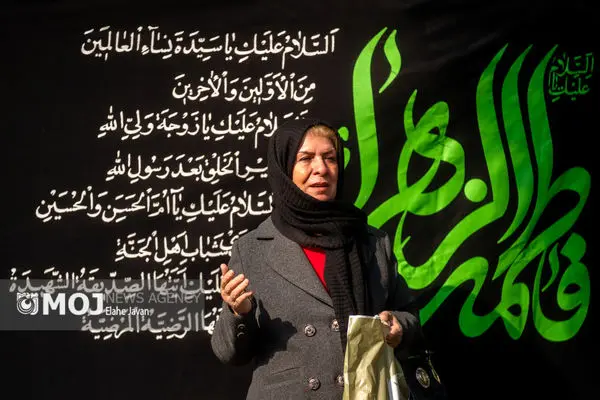 اَلسَّلامُ عَلَيْكِ يا سَيِّدَةَ نِسآءِ الْعالَمينَ
مِنَ الْأَوَّلينَ وَالْآخِرينَ
عَلَيْكِ يا زَوْجَةَ وَلِيِّ اللهِ
الْخَلْقِ بَعْدَ رَسُولِ اللهِ
السَّلامُ عَلَيْكِ يا اُمَّ الْحَسَنِ وَالْحُسَيْنِ
شَبابِ اَهْلِ الْجَنَّةِ
اَيَّتُهَا الصِّدّيقَةُ الشَّهيدَةُ
الرَّضِيَّةُ الْمَرْضِيَّةُ
فاطمة الزهرا
السَّلام عليها
MOJ NEWS AGENCY
Elahe Javan